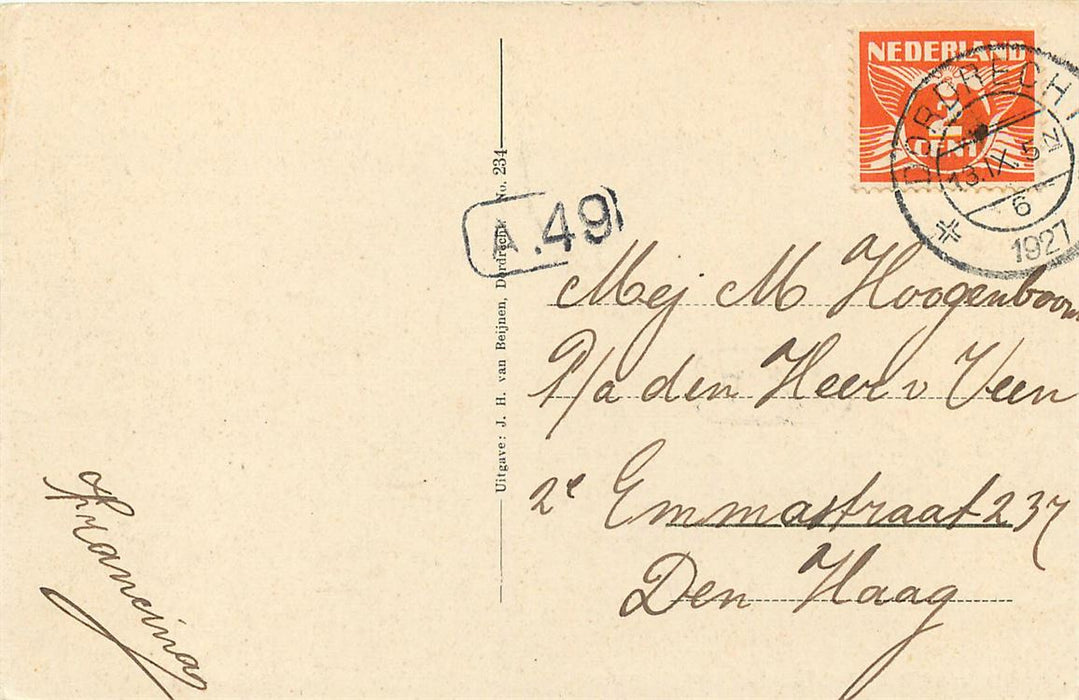 NEDERLAND
2½
CENT
DORDRECHT
13.IX.5 N
6
1927
A.49
Mej M Hoogenboom
P/a den Heer v Veen
2e Emmastraat 237
Den Haag
Uitgave: J. H. van Beijnen, Dordrecht No. 234
Francina